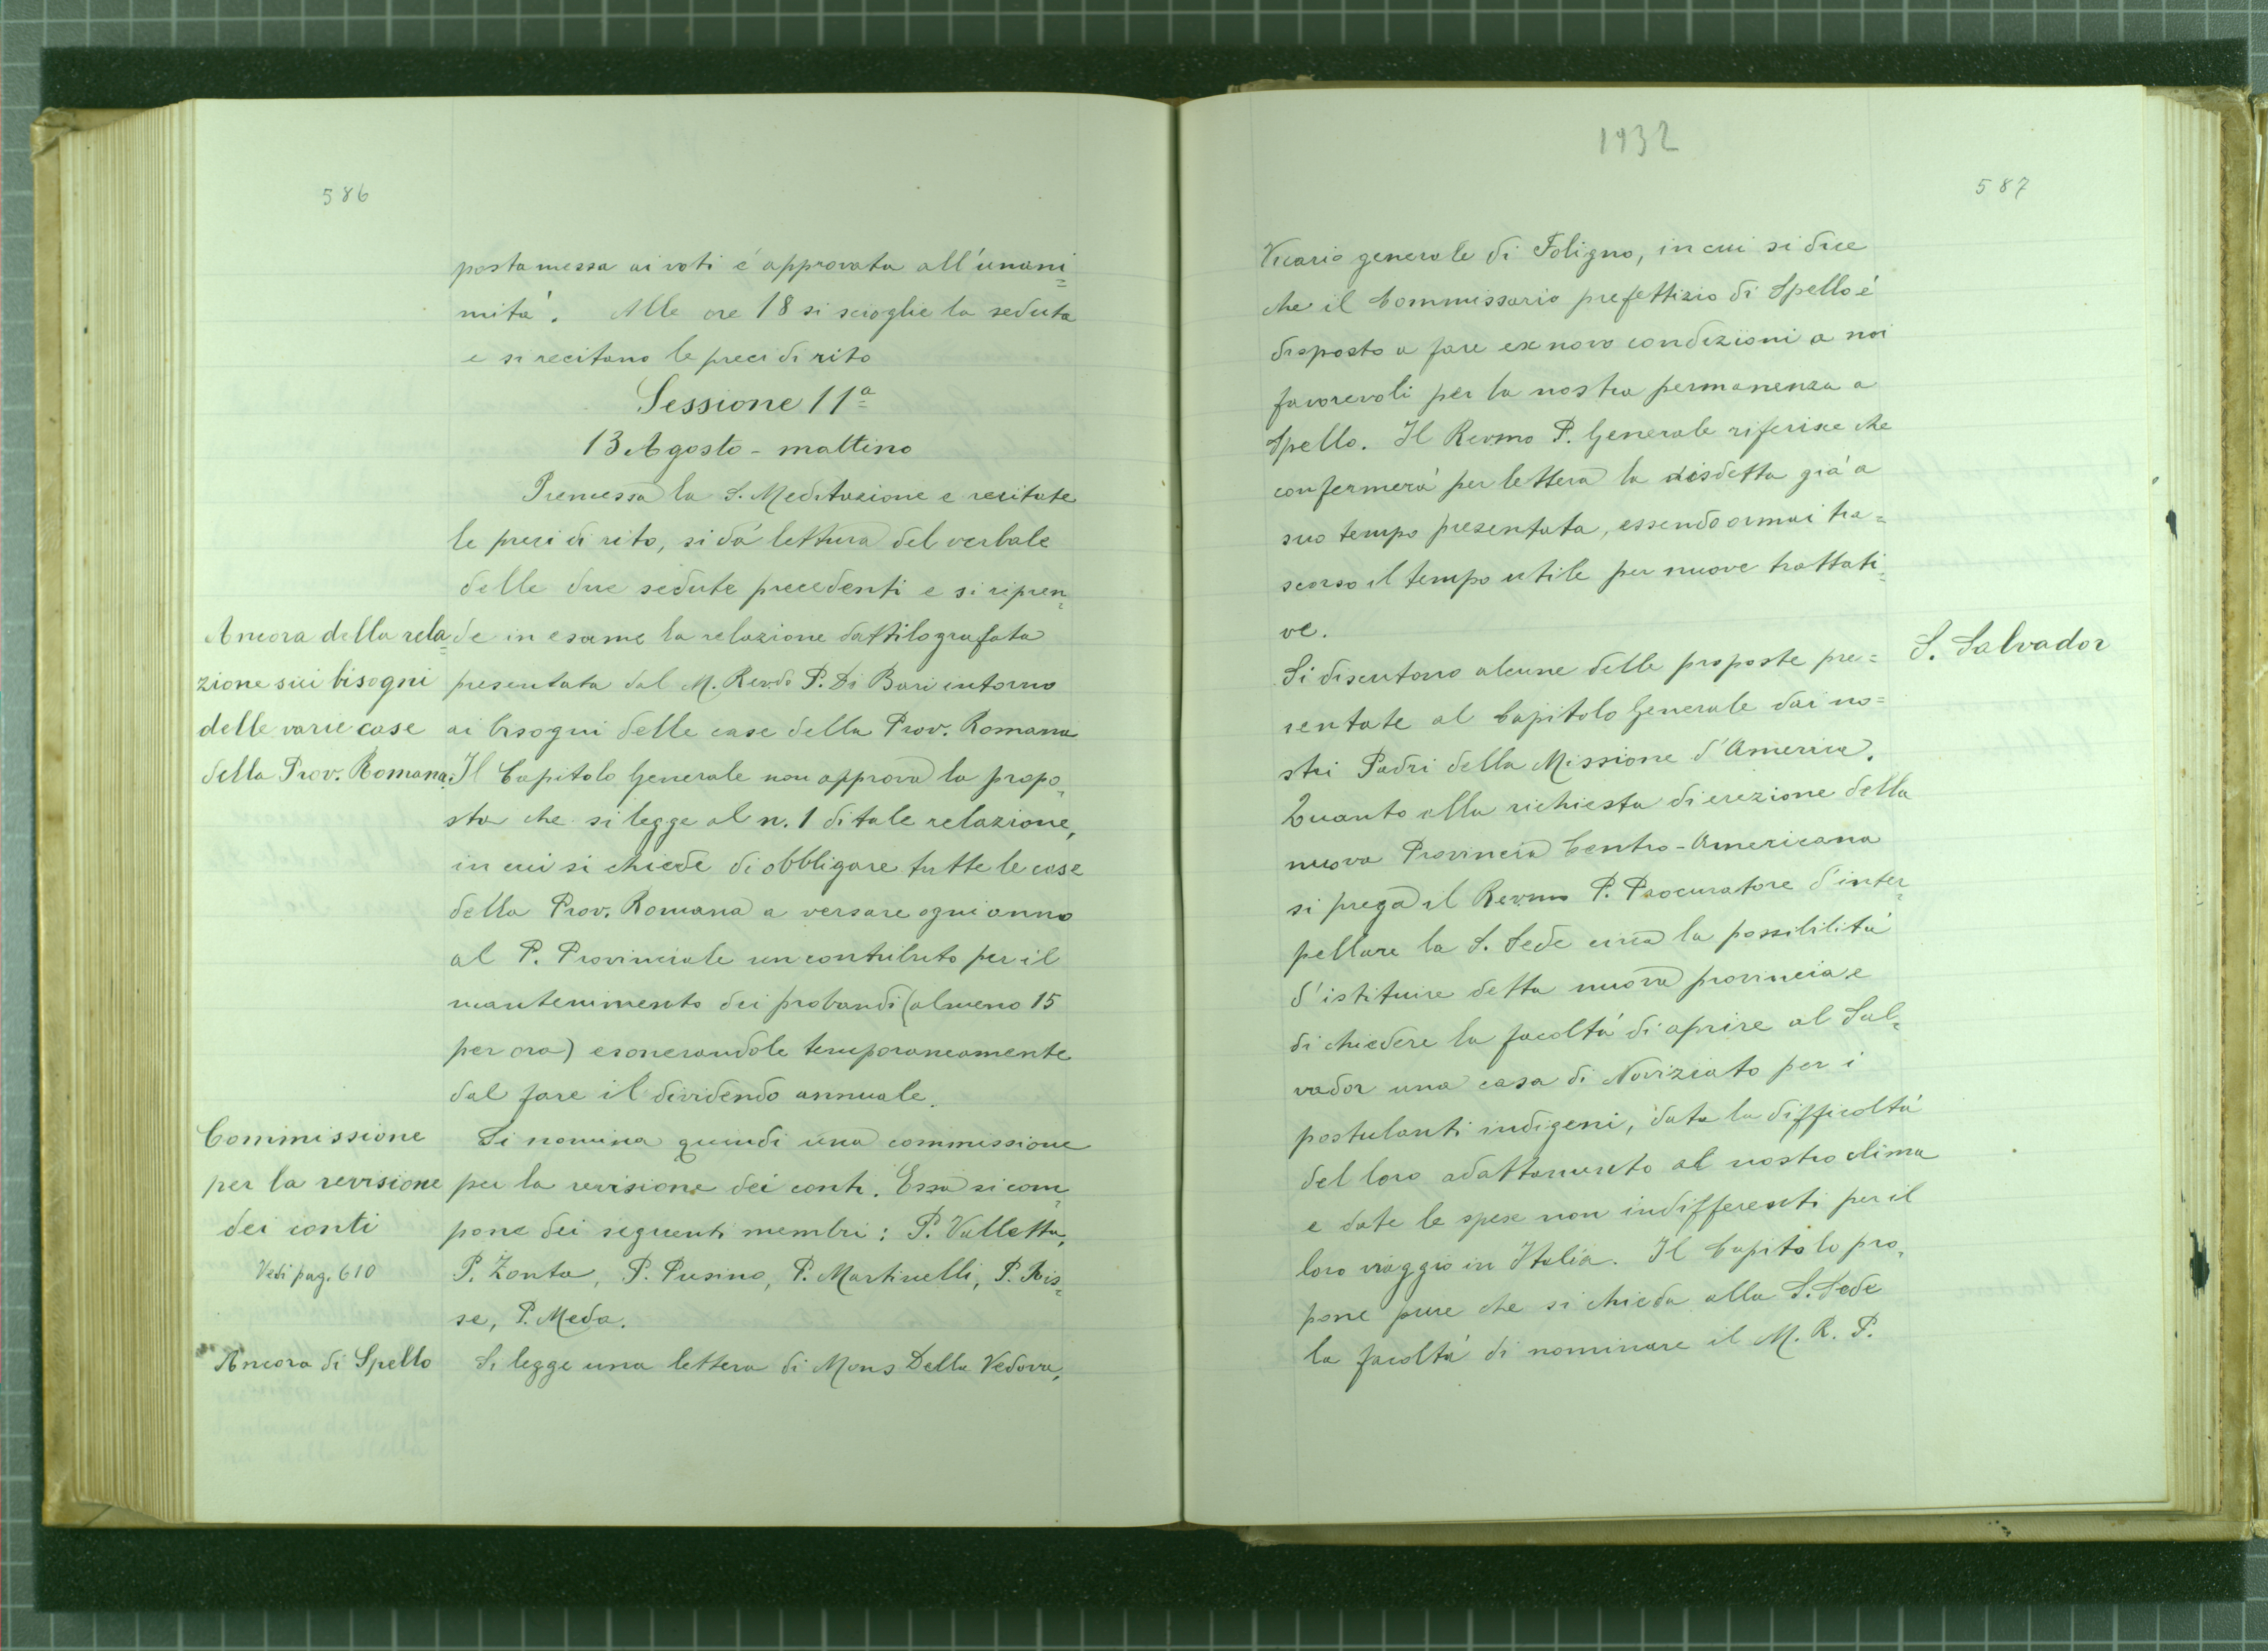 586
posta messa ai voti é approvata all'unani=
mitá. Alle ore 18 si scioglie la seduta
e si recitano le preci di rito
Sessione 11ª
13 Agosto - mattino
Premessa la S. Meditazione e recitate
le preci di rito, si dá lettura del verbale
delle due sedute precedenti e si ripren=
Ancora della rela=
de in esame la relazione dattilografata
zione sui bisogni
presentata dal M. Rev.do P. Di Bari intorno
delle varie case
ai bisogni delle case della Prov. Romana
della Prov. Romana.
Il Capitolo Generale non approva la propo=
sta che si legge al n. 1 di tale relazione,
in cui si chiede di obbligare tutte le case
della Prov. Romana a versare ogni anno
al P. Provinciale un contributo per il
mantenimento dei probandi (almeno 15
per ora) esonerandole temporaneamente
dal fare il dividendo annuale.
Commissione
Si nomina quindi una commissione
per la revisione
per la revisione dei conti. Essa si com=
dei conti
pone dei seguenti membri: P. Valletta,
Vedi pag. 610
P. Zonta, P. Pusino, P. Martinelli, P. Ris=
se, P. Meda.
Ancora di Spello
Si legge una lettera di Mons Della Vedova,
1932
587
Vicario generale di Foligno, in cui si dice
che il Commissario prefettizio di Spello é
disposto a fare ex novo condizioni a noi
favorevoli per la nostra permanenza a
Spello. Il Rev.mo P. Generale riferisce che
confermerá per lettera la disdetta giá a
suo tempo presentata, essendo ormai tra=
scorso il tempo utile per nuove trattati=
ve.
S. Salvador
Si discutono alcune delle proposte pre=
sentate al Capitolo Generale dai no=
stri Padri della Missione d'America.
Quanto alla richiesta di erezione della
nuova Provincia Centro-Americana
si prega il Rev.mo P. Procuratore d'inter=
pellare la S. Sede circa la possibilitá
d'istituire detta nuova provincia e
di chiedere la facoltá di aprire al Sal=
vador una casa di Noviziato per i
postulanti indigeni, data la difficoltá
del loro adattamento al nostro clima
e date le spese non indifferenti per il
loro viaggio in Italia. Il Capitolo pro=
pone pure che si chieda alla S. Sede
la facoltá di nominare il M. R. P.